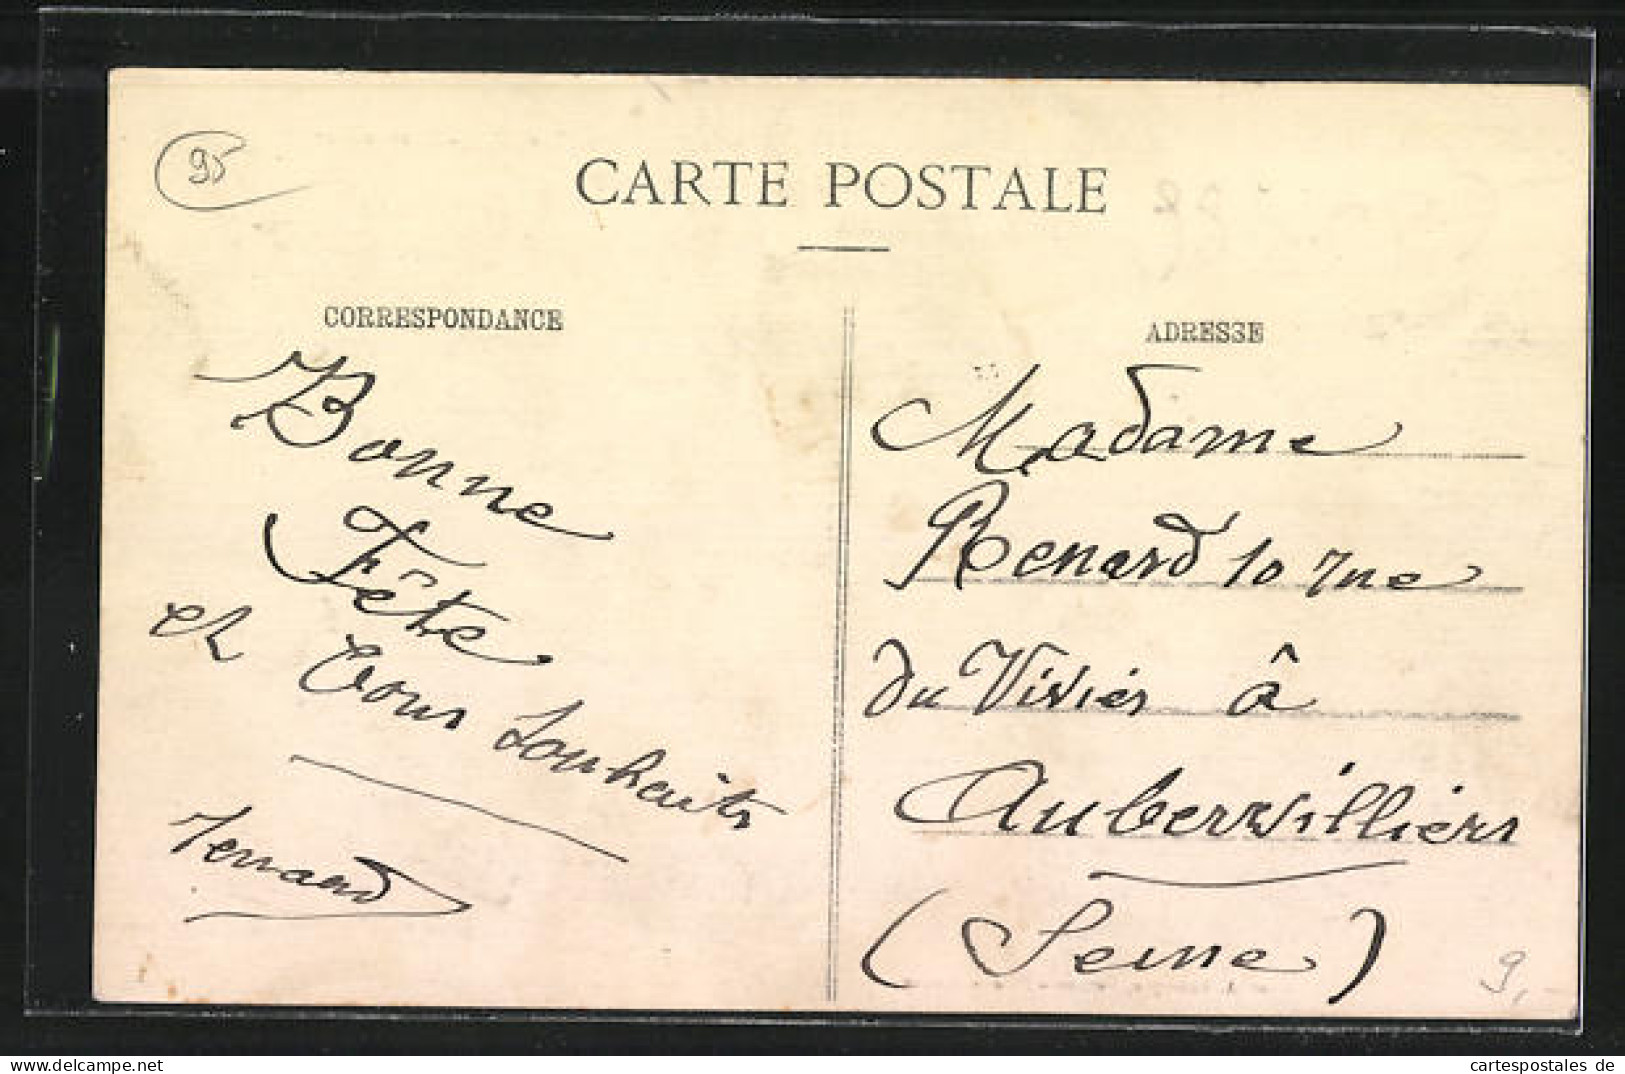 95
CARTE POSTALE
CORRESPONDANCE
Bonne
Fête
et tous souhaits
Fernand
ADRESSE
Madame
Renard 10 rue
du Vivier à
Aubervilliers
(Seine)
9,-
cartespostales de